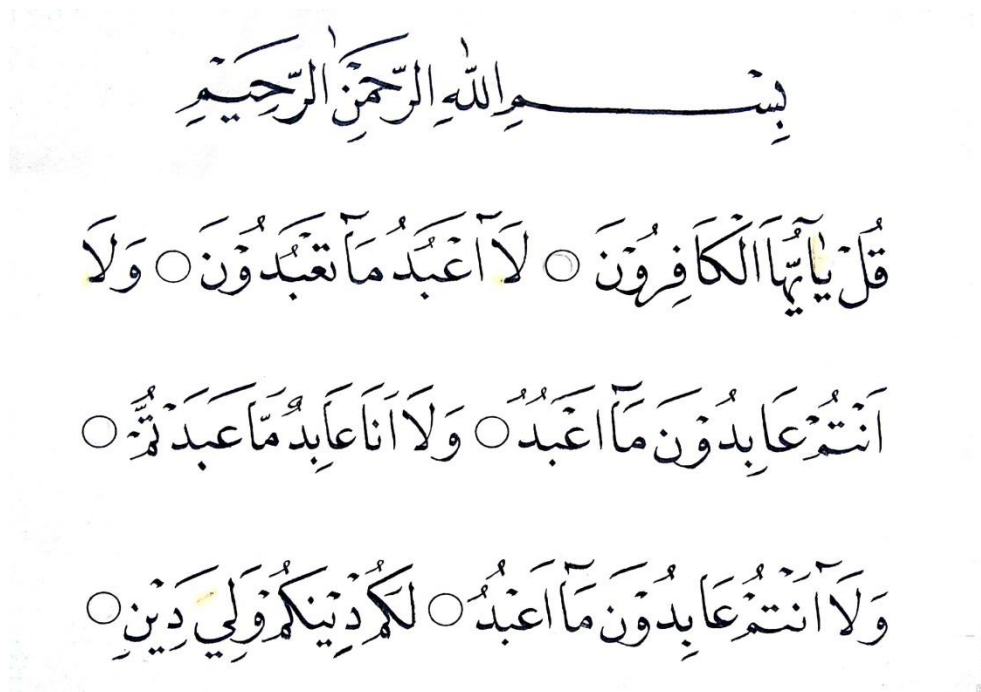 بِسْمِ اللّٰهِ الرَّحْمٰنِ الرَّحِيْمِ
قُلْ يٰٓاَيُّهَا الْكَافِرُوْنَ ○ لَآ اَعْبُدُ مَا تَعْبُدُوْنَ ○ وَلَا
اَنْتُمْ عَابِدُوْنَ مَآ اَعْبُدُ ○ وَلَا اَنَا عَابِدٌ مَّا عَبَدْتُّمْ ○
وَلَآ اَنْتُمْ عَابِدُوْنَ مَآ اَعْبُدُ ○ لَكُمْ دِيْنُكُمْ وَلِيَ دِيْنِ ○